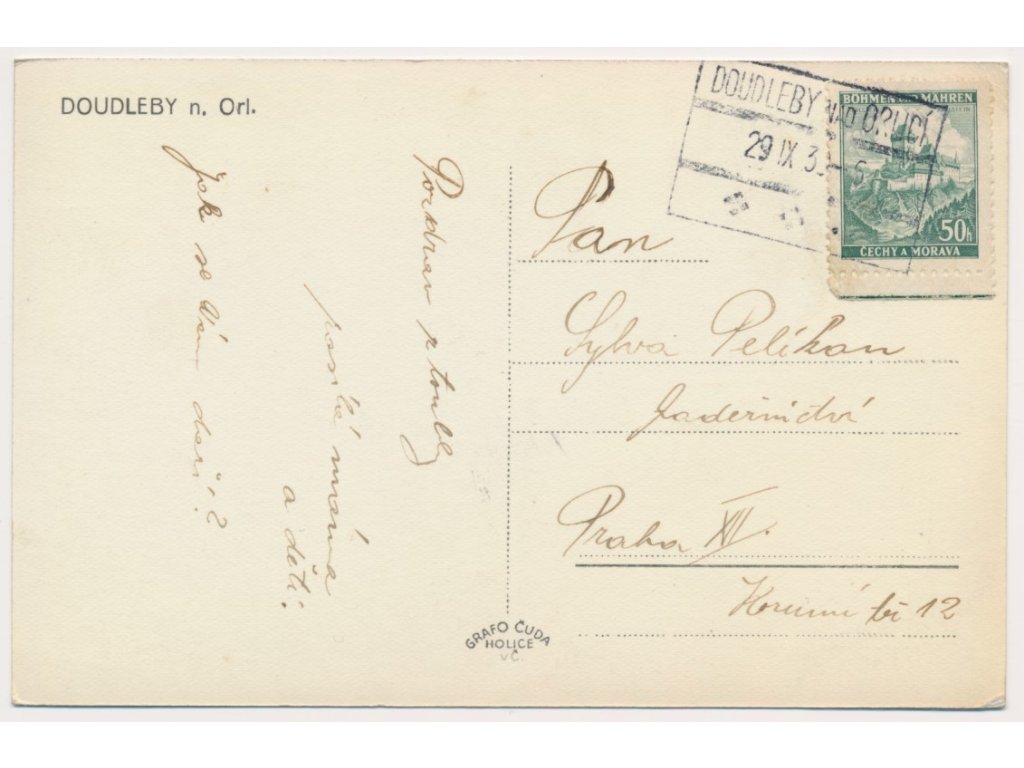 DOUDLEBY n. Orl.
DOUDLEBY NAD ORLICÍ
29 IX 3
BÖHMEN UND MÄHREN
50h
ČECHY A MORAVA
Pozdrav z toulky
posílá máma
a děti.
Jak se Vám daří?
Pan
Sylva Pelikan
kadeřnictví
Praha XII.
Korunní tř 12
GRAFO ČUDA
HOLICE
v Č.